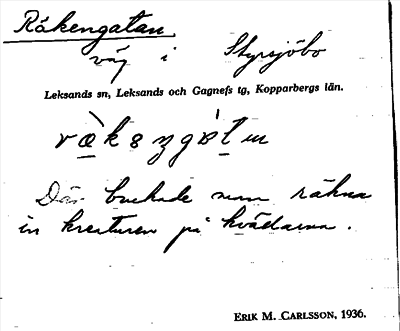 Räkengatan
väg i Styrsjöbo
Leksands sn, Leksands och Gagnefs tg, Kopparbergs län.
Där brukade man räkna
in kreaturen på kvällarna.
ERIK M. CARLSSON, 1936.